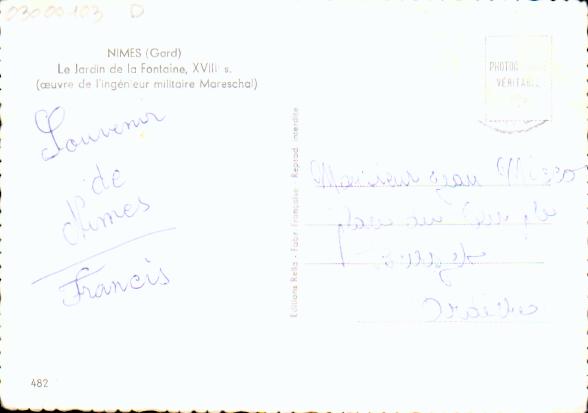 03000-103 D
NIMES (Gard)
Le Jardin de la Fontaine, XVIIIᵉ s.
(œuvre de l'ingénieur militaire Mareschal)
PHOTOGRAPHIE
VÉRITABLE
Souvenir
de
Nimes
Francis
Editions Rella - Fabr. Française - Reprod. interdite
Monsieur Jean
place du
Ardèche
482